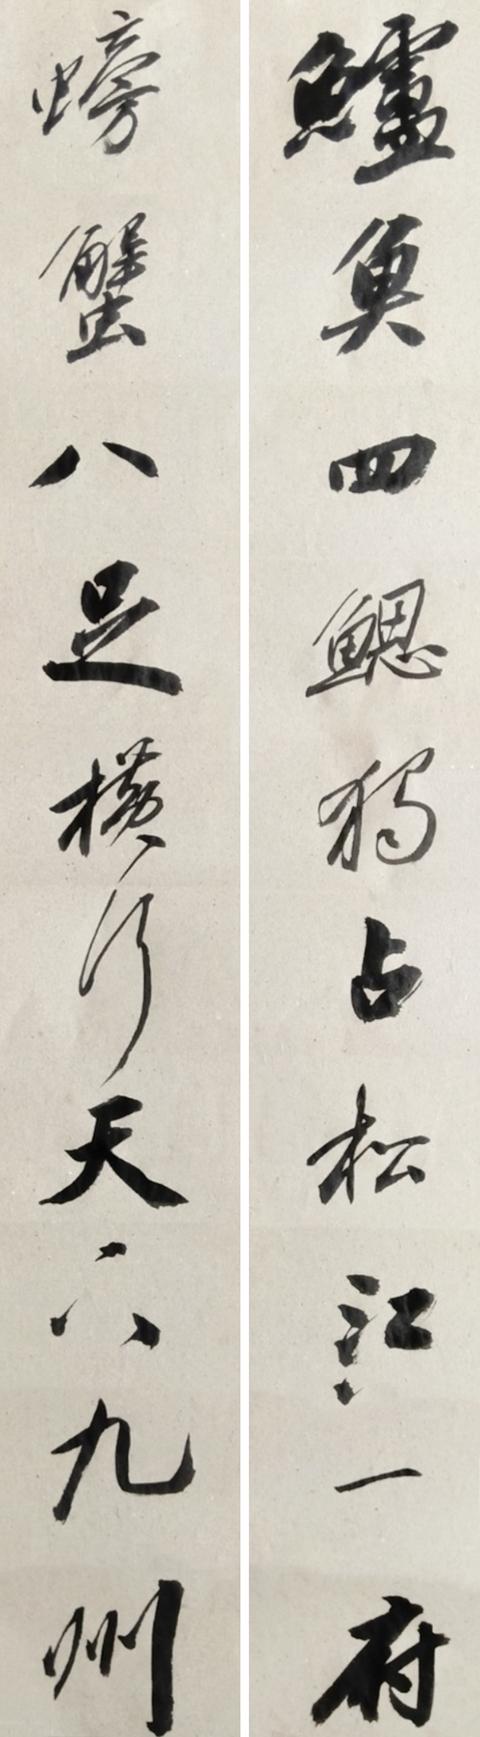 鱸魚四鰓獨占松江一府
螃蟹八足橫行天下九州